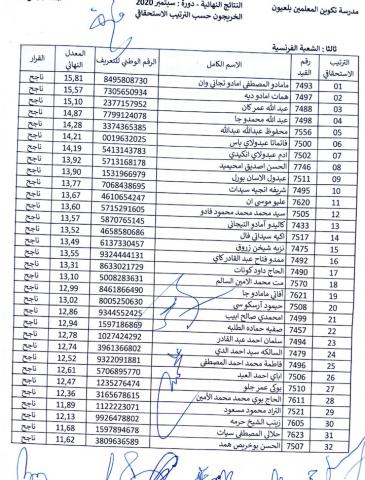 مدرسة تكوين المعلمين بلعيون
النتائج النهائية - دورة : سبتمبر 2020
الخريجون حسب الترتيب الاستحقاقي
ثالثا : الشعبة الفرنسية
الترتيب الاستحقاقي | رقم القيد | الاسم الكامل | الرقم الوطني للتعريف | المعدل النهائي | القرار
01 | 7493 | مامادو المصطفى امادو تجاني وان | 8495808730 | 15,81 | ناجح
02 | 7497 | همات امادو ديه | 7305650934 | 15,57 | ناجح
03 | 7488 | عبد الله عمر كان | 2377157952 | 15,10 | ناجح
04 | 7498 | عبد الله محمدو جا | 7799124078 | 14,87 | ناجح
05 | 7556 | محفوظ عبدالله عبدالله | 3374365385 | 14,28 | ناجح
06 | 7500 | فاتماتا عبدولاي ياس | 0019632025 | 14,21 | ناجح
07 | 7502 | ادم عبدولاي انكيدي | 5413143783 | 14,19 | ناجح
08 | 7746 | الحسن اصديق امحيميد | 5713168178 | 13,92 | ناجح
09 | 7511 | عبدول الاسان بورل | 1531966979 | 13,90 | ناجح
10 | 7495 | شريفه انجيه سيدات | 7068438695 | 13,77 | ناجح
11 | 7620 | عليو موسى ان | 4610654247 | 13,67 | ناجح
12 | 7505 | سيد محمد محمد محمود فادو | 5715291605 | 13,60 | ناجح
13 | 7433 | كاليدو آمادو التيجاني | 5870765145 | 13,57 | ناجح
14 | 7517 | اكبه سيداتي فال | 4658580686 | 13,52 | ناجح
15 | 7475 | نزيه شيخن زروق | 6137330457 | 13,49 | ناجح
16 | 7492 | ممدو فتاح عبد القادر كاي | 9324444131 | 13,55 | ناجح
17 | 7490 | الحاج داود كونات | 8633021729 | 13,31 | ناجح
18 | 7570 | مت محمد الامين السالم | 5008283631 | 13,10 | ناجح
19 | 7621 | آفاتي مامادو جا | 8461866490 | 12,99 | ناجح
20 | 7508 | حيمود آزسكو سي | 8005250630 | 13,02 | ناجح
21 | 7499 | امحمدي صالح ابيب | 9344552425 | 12,86 | ناجح
22 | 7457 | صفيه حماده الطلبه | 1597186869 | 12,94 | ناجح
23 | 7494 | سلمان احمد عبد القادر | 1027424292 | 12,78 | ناجح
24 | 7479 | السالكه سيد احمد الدي | 3961366802 | 12,74 | ناجح
25 | 7496 | فاطمة محمد احمد المصطفى | 9322091881 | 12,52 | ناجح
26 | 7506 | اباي احمد العبد | 5706895770 | 12,61 | ناجح
27 | 7510 | يوكي عمر جلو | 1235276474 | 12,47 | ناجح
28 | 7611 | الحاج بوي محمد محمد الأمين | 3165678615 | 12,36 | ناجح
29 | 7521 | التراد محمود مسعود | 1122223071 | 11,89 | ناجح
30 | 7605 | زينب الشيخ حرمه | 9926478802 | 12,13 | ناجح
31 | 7623 | حلالي المصطفى سيات | 1597894678 | 11,68 | ناجح
32 | 7507 | الحسن بوخريص همد | 3809636589 | 11,62 | ناجح